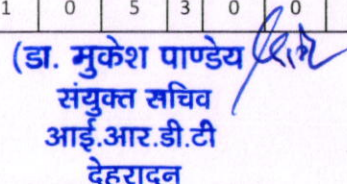 1 0 5 3 0 0
(डा. मुकेश पाण्डेय
संयुक्त सचिव
आई.आर.डी.टी
देहरादून